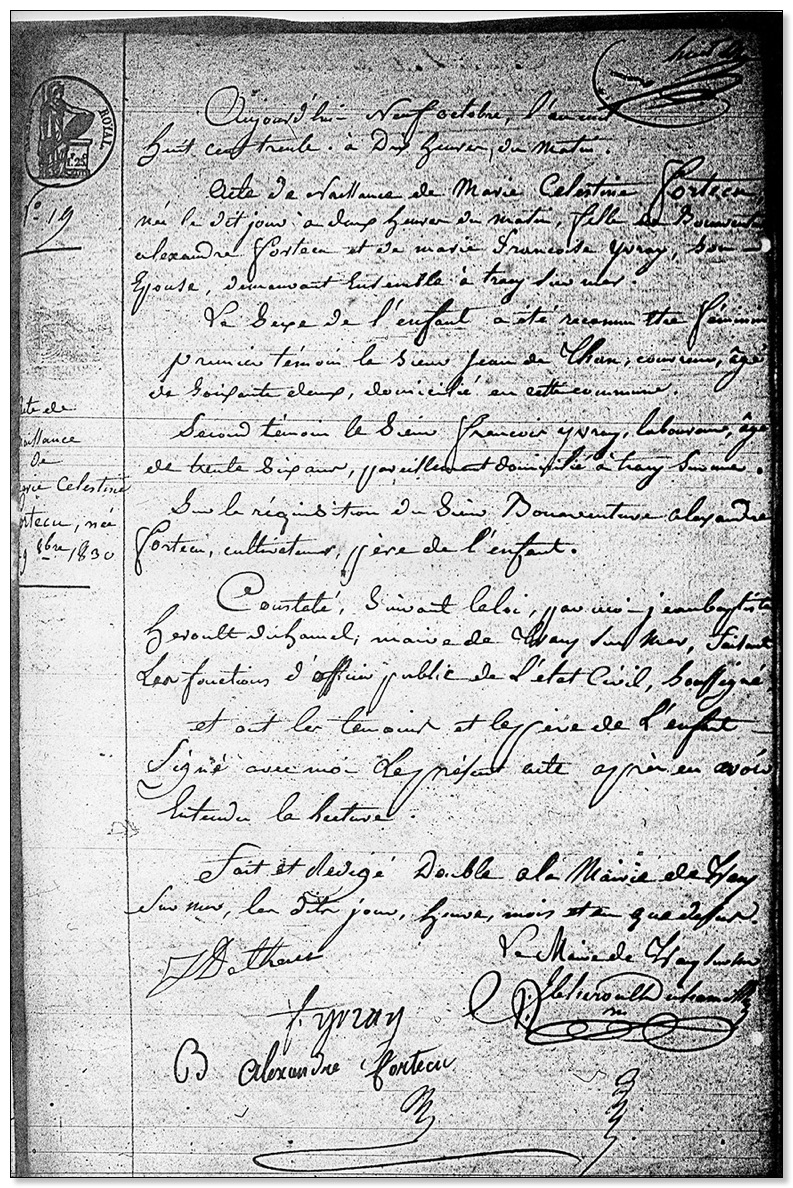 huit
ROYAL
Aujourd'hui Neuf octobre, l'an mil
huit cent trente. à Dix heures, du matin.
N° 19
Acte de Naissance de Marie Celestine Fortecu,
née le dit jour à deux heures du matin, fille de Bonaventure
alexandre Fortecu et de marie Francoise yvray, Son
Epouse, demeurant Ensemble à tracy sur mer.
Le Sexe de l'enfant a été reconnu être féminin
premier témoin le Sieur Jean de Than, couvreur, âgé
de Soixante deux, domicilié en cette commune.
Second témoin le Sieur francois yvray, laboureur, âgé
de trente Six ans, pareillement domicilié à tracy Sur mer.
Sur la réquisition du Sieur Bonaventure alexandre
Fortecu, cultivateur, père de l'enfant.
Acte de
naissance
de
marie Celestine
Fortecu, née
9 8bre 1830
Constaté, Suivant la loi, par moi jean baptiste
heroult duhamel, maire de Tracy Sur Mer, faisant
Les fonctions d'officier public de L'état Civil, Soussigné.
et ont les témoins et le père de L'enfant
Signé avec moi Le présent acte après en avoir
Entendu la Lecture.
Fait et rédigé Double a la Mairie de Tracy
Sur mer, les dits jour, heure, mois et an que dessus.
Le Maire de Tracy sur mer
J Dethan
f. yvray
B alexandre fortecu